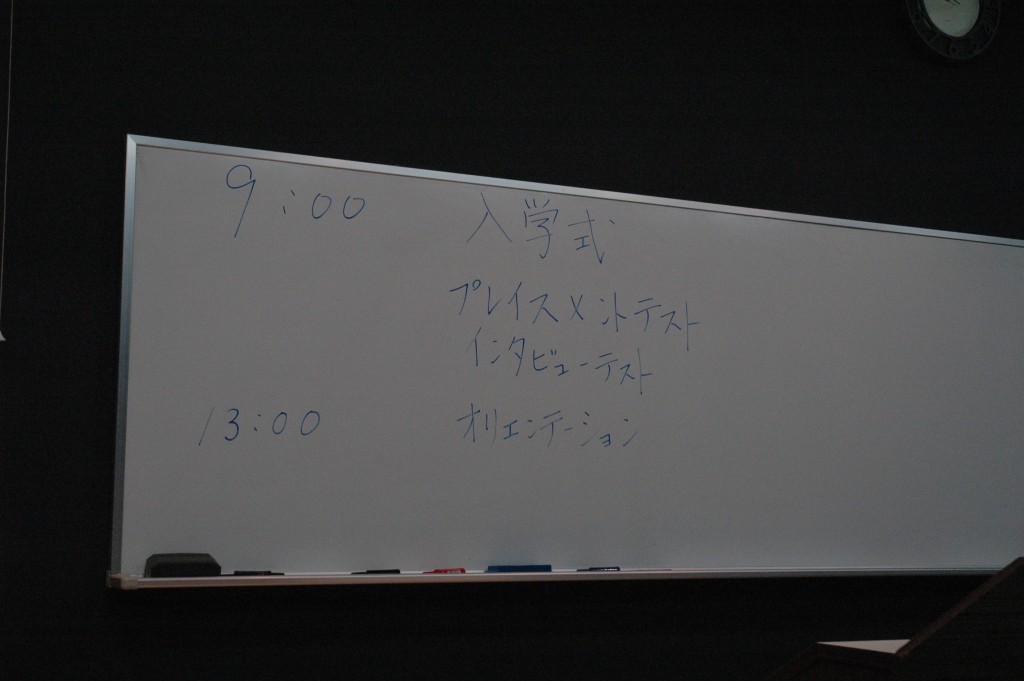 9:00 入学式
プレイスメントテスト
インタビューテスト
13:00 オリエンテーション